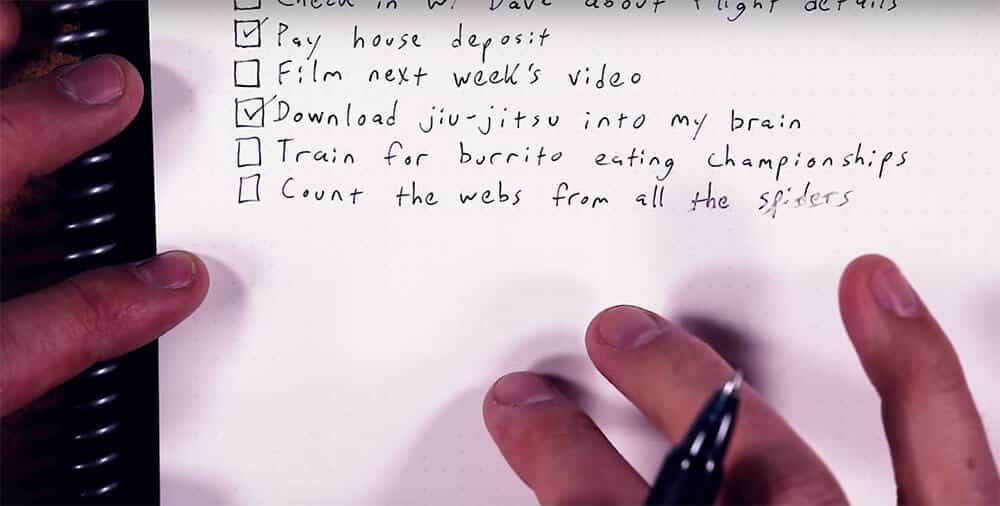 ☐ Check in w. Dave about flight details
☑ Pay house deposit
☐ Film next week's video
☑ Download jiu-jitsu into my brain
☐ Train for burrito eating championships
☐ Count the webs from all the spiders